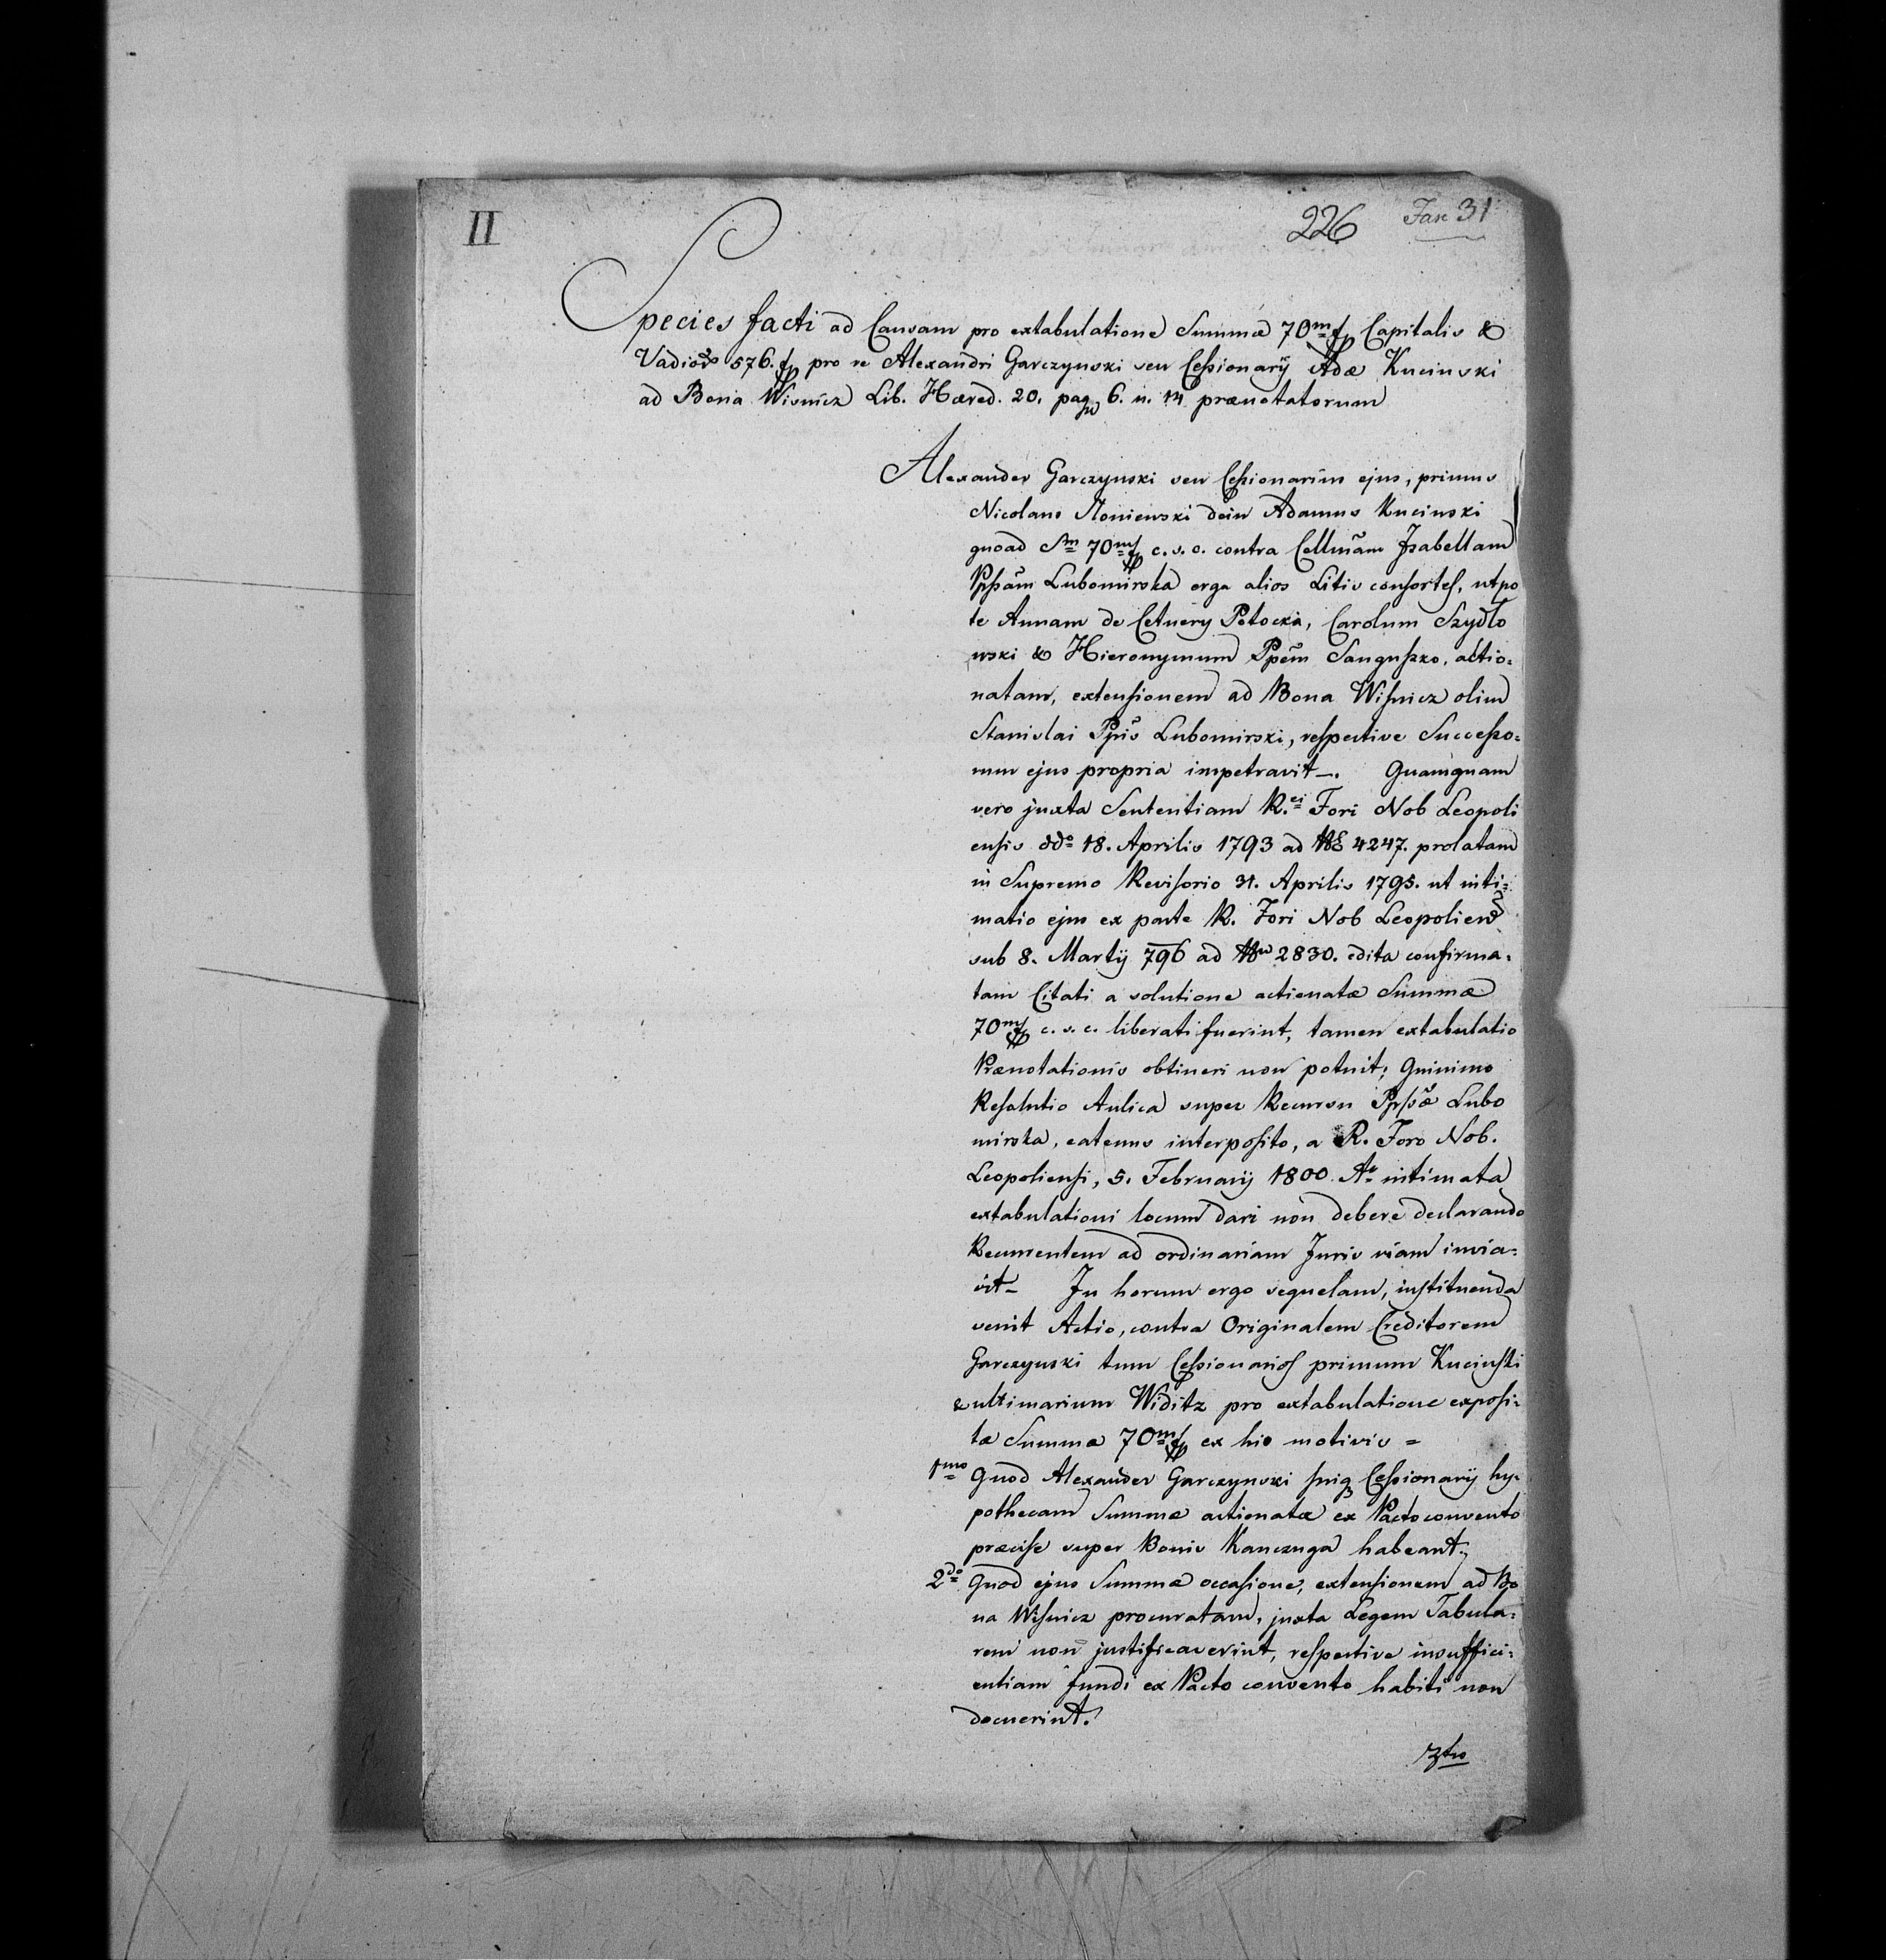 II
226 Fan 31
Species facti ad Causam pro extabulatione Summæ 70m fp Capitalis &
Vadior 576. fp pro re Alexandri Garczynski seu Cessionarÿ Adæ Kucinski
ad Bona Wisnicz Lib. Hæred. 20. pag 6. n. 14 prænotatorum
Alexander Garczynski seu Cessionarius ejus, primus
Nicolaus Moniewski dein Adamus Kucinski
quoad Sm 70m fp c. s. c. contra Cellmam Isabellam
Ppssam Lubomirska erga alios Litis consortes, utpo
te Annam de Cetnery Potocka, Carolum Szydlo
wski & Hieronymum Ppem Sanguszko, actio=
natam, extensionem ad Bona Wisnicz olim
Stanislai Ppis Lubomirski, respective Successo=
rum ejus propria impetravit. Quamquam
vero juxta Sententiam R.ei Fori Nob Leopoli
ensis ddo 18. Aprilis 1793 ad NE 4247. prolatam
in Supremo Revisorio 31. Aprilis 1795. ut inti=
matio ejus ex parte R. Fori Nob Leopoliens
sub 8. Martÿ 796 ad Nru 2830. edita confirma=
tam Citati a solutione actionatæ Summæ
70m fp c. s. c. liberati fuerint, tamen extabulatio
Prænotationis obtineri non potuit; Quinimo
Resolutio Aulica super Recursu Ppssæ Lubo
mirska, eatenus interposito, a R. Foro Nob.
Leopoliensi, 5. Februarÿ 1800 A. intimata
extabulationi locum dari non debere declarando
Recurrentem ad ordinariam Juris viam invia=
vit_ In horum ergo sequelam, instituenda
venit Actio, contra Originalem Creditorem
Garczynski tum Cessionarios primum Kucinski
& ultimarium Widitz pro extabulatione exposi=
tæ Summæ 70m fp ex his motivis =
1mo Quod Alexander Garczynski suiq Cessionarÿ hy=
pothecam Summæ actionatæ ex Pacto convento
præcise super Bonis Kanczuga habeant.
2do Quod ejus Summæ occasione, extensionem ad Bo
na Wisnicz procuratam, juxta Legem Tabula=
rem non justificaverint, respective insuffici=
entiam fundi ex Pacto convento habiti non
docuerint.
3tio